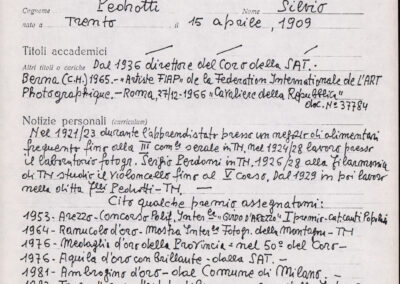 Cognome Pedrotti Nome Silvio
nato a Trento il 15 aprile, 1909
Titoli accademici
Altri titoli o cariche Dal 1936 direttore del Coro della SAT.-
Berna (C.H.) 1965.- "Artiste FIAP" de la Federation Internationale de L'ART
Photographique.- Roma, 27/12-1966 "Cavaliere della Repubblica"
doc. N° 37784
Notizie personali (curriculum)
Nel 1921/23 durante l'apprendistato presso un negozio di alimentari
frequento fino alla III com.le serale in TN. nel 1924/28 lavoro presso
il laboratorio fotogr. Sergio Perdomi in TN. 1926/28 alla Filarmonia
di TN studio il violoncello fino al V corso. Dal 1929 in poi lavoro
nella ditta F.lli Pedrotti-TN. —
Cito qualche premio assegnatomi:
1953- Arezzo- Concorso Polif. Inter.le "GUIDO D'AREZZO" I premio- cat. canti Popolari
1964- Ranuculo d'oro- Mostra Inter.le Fotogr. della Montagna- TN
1976- Medaglia d'oro della Provincia= nel 50° del Coro-
1976- Aquila d'oro con Brillante- della SAT. -
1981- Ambrogino d'oro- dal Comune di Milano. -